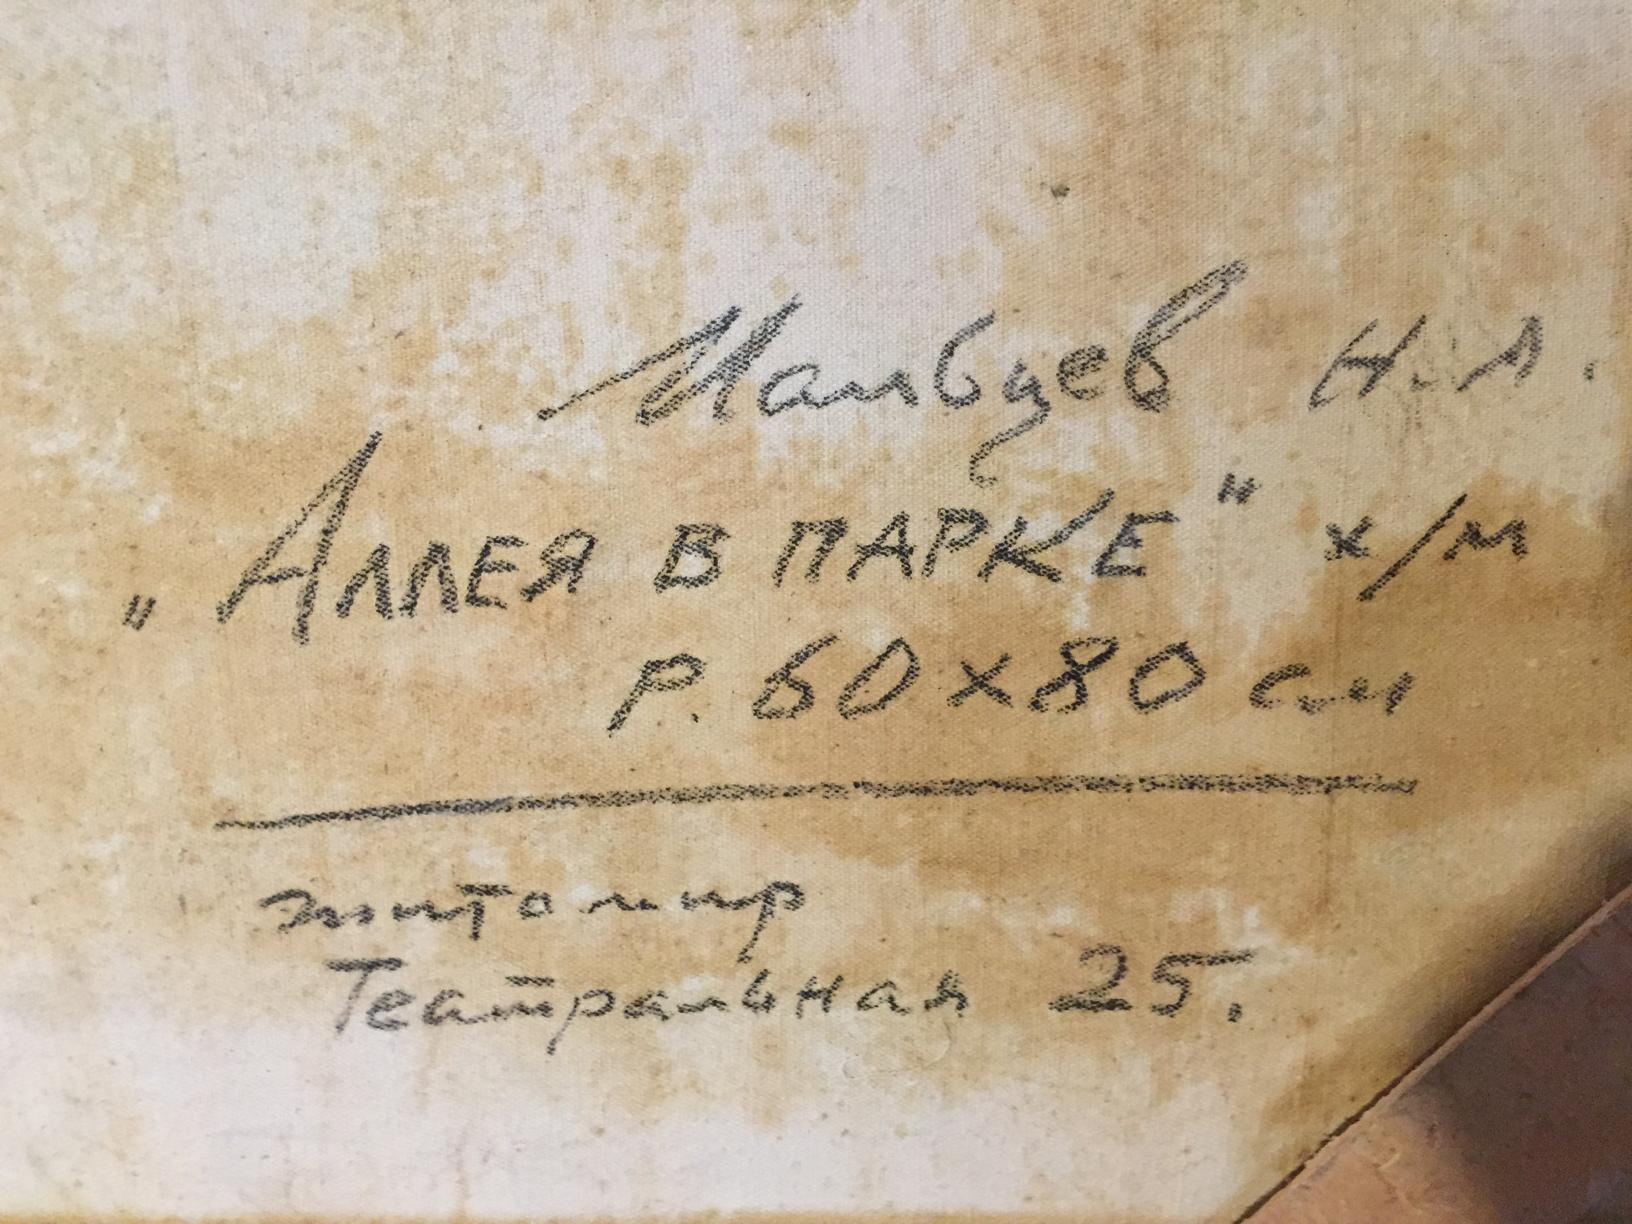 Мальцев Н. А.
„Аллея в парке" х/м
р. 60х80 см
житомир
Театральная 25.